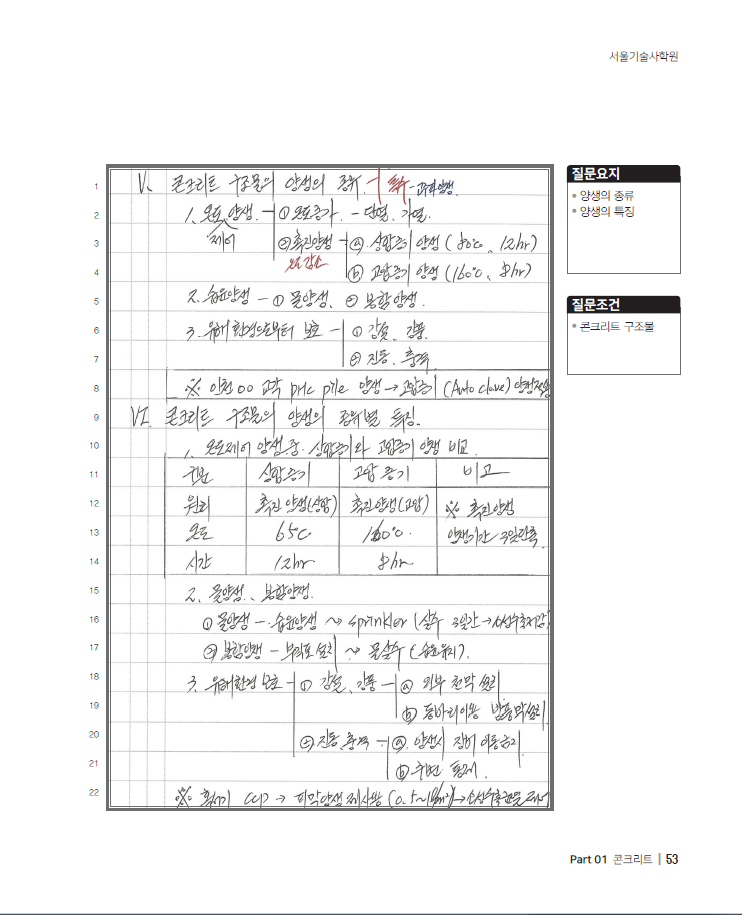 서울기술사학원
1 V. 콘크리트 구조물의 양생의 종류. 특수 - 피막양생.
2 1. 온도 양생 - ① 온도증가. - 단열. 가열.
3 제어 ② 촉진양생 - ⓐ 상압증기 양생 (80℃, 12hr)
4 온도감소 ⓑ 고압증기 양생 (160℃, 8hr)
5 2. 습윤양생 - ① 물양생. ② 봉함양생.
6 3. 유해환경으로부터 보호 - ① 강설, 강풍.
7 ② 진동, 충격
8 ※ 인천 OO 교각 PHC pile 양생 → 고압증기 (Auto clave) 양생적용
9 VI. 콘크리트 구조물의 양생의 종류별 특징.
10 1. 온도제어 양생 중. 상압증기와 고압증기 양생 비교.
11 구분 상압증기 고압증기 비고
12 원리 촉진양생(상압) 촉진양생(고압) ※ 촉진양생
13 온도 65℃ 160℃. 양생기간 3일단축.
14 시간 12hr 8hr
15 2. 물양생, 봉함양생.
16 ① 물양생 - 습윤양생 ~ sprinkler (살수 3일간 → 소성수축저감)
17 ② 봉함양생 - 부직포 설치 ~ 물살수 (습윤유지).
18 3. 유해환경 보호 - ① 강설, 강풍 - ⓐ 외부 천막 설치
19 ⓑ 동바리이용 방풍막설치.
20 ② 진동, 충격 - ⓐ. 양생시 장비 이동금지.
21 ⓑ 주변 통제.
22 ※ CCP → 피막양생제 사용 (0.5~1ℓ/m²) → 소성수축균열 제어
질문요지
• 양생의 종류
• 양생의 특징
질문조건
• 콘크리트 구조물
Part 01 콘크리트 | 53